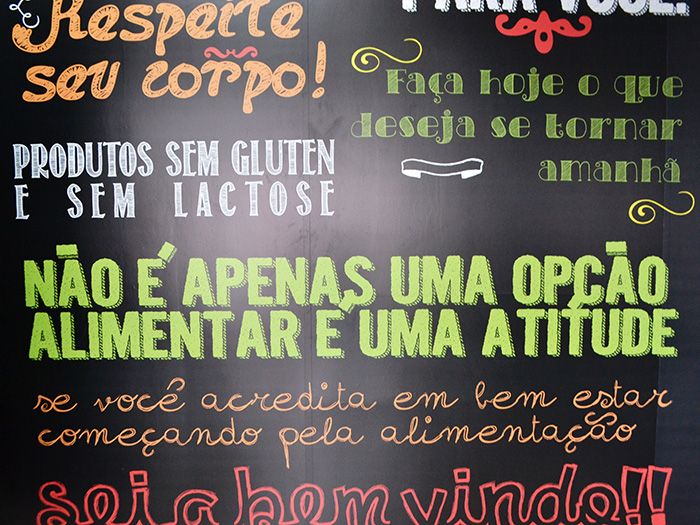 Respeite
seu corpo!
PARA VOCÊ!
Faça hoje o que
deseja se tornar
amanhã
PRODUTOS SEM GLUTEN
E SEM LACTOSE
NÃO É APENAS UMA OPÇÃO
ALIMENTAR É UMA ATITUDE
se você acredita em bem estar
começando pela alimentação
seja bem vindo!!